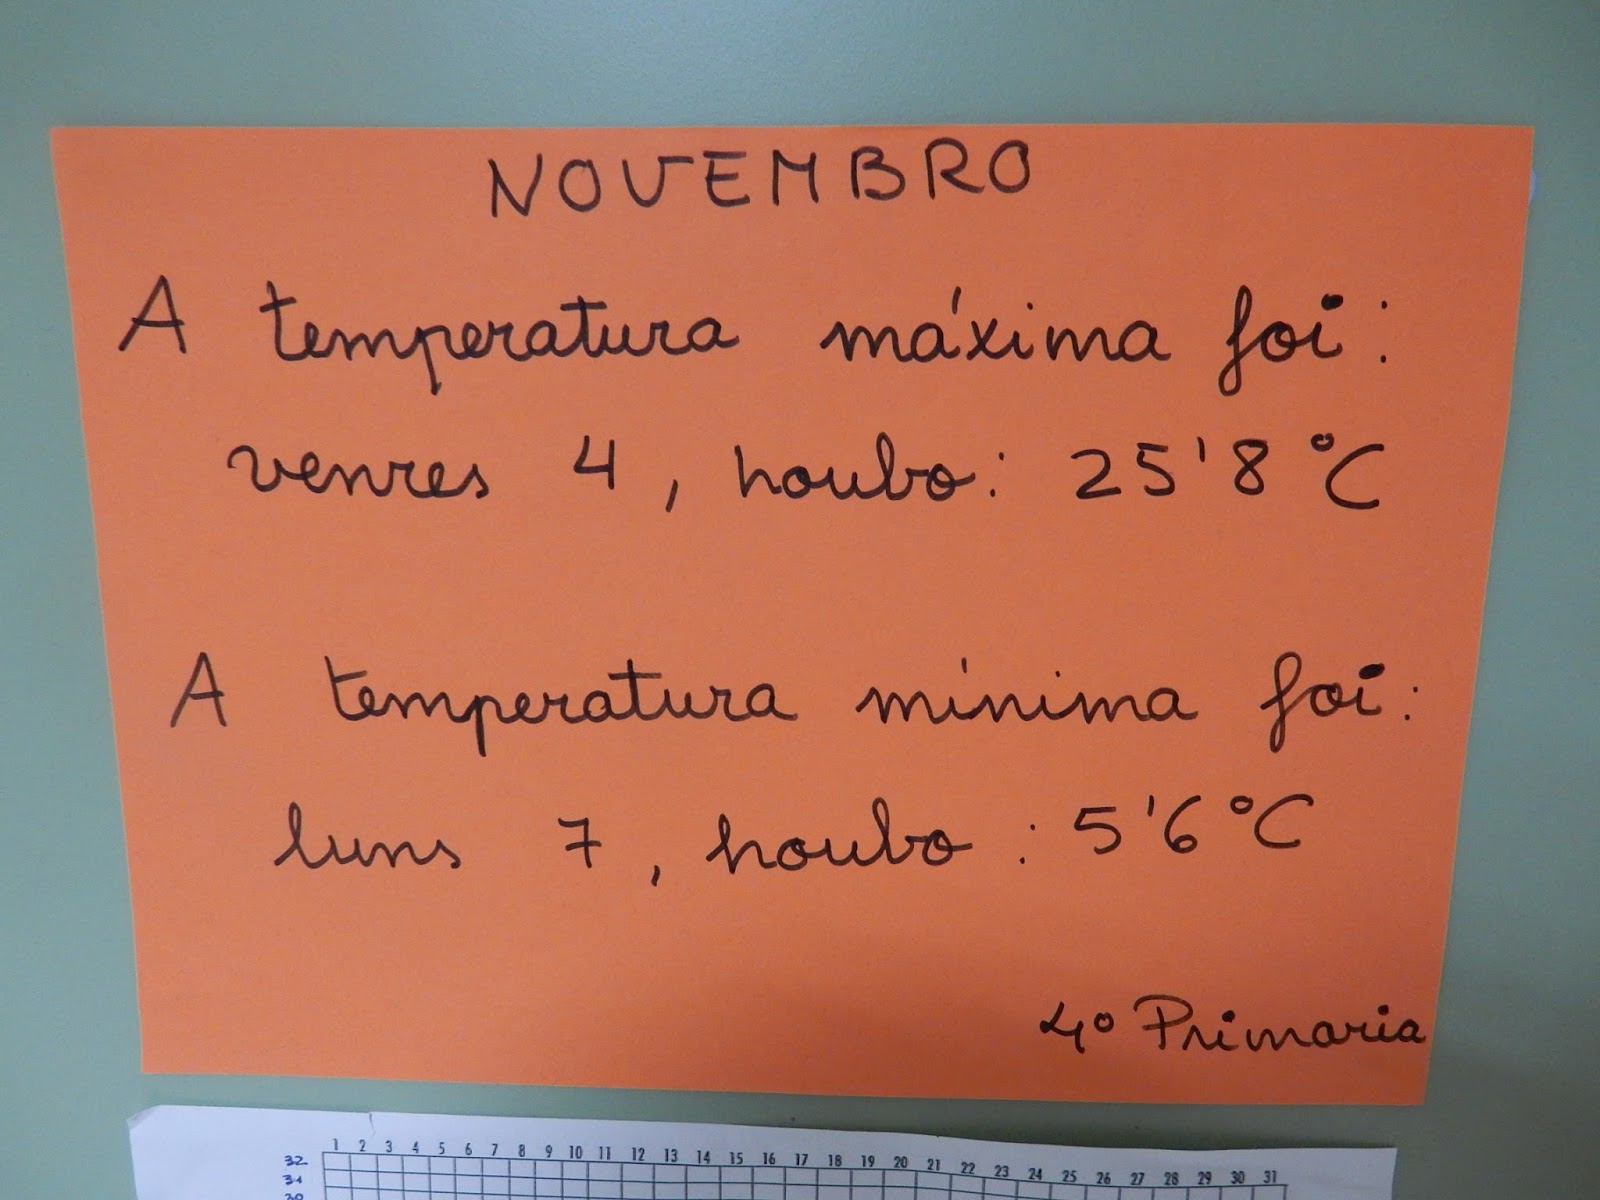 NOVEMBRO
A temperatura máxima foi:
venres 4, houbo: 25'8 °C
A temperatura mínima foi:
luns 7, houbo: 5'6 °C
4º Primaria
1 2 3 4 5 6 7 8 9 10 11 12 13 14 15 16 17 18 19 20 21 22 23 24 25 26 27 28 29 30 31
32
31